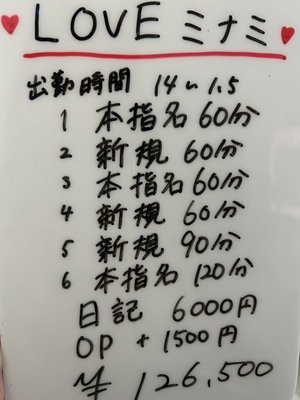 ♥ LOVE ミナミ ♥
出勤時間 14〜1.5
1 本指名 60分
2 新規 60分
3 本指名 60分
4 新規 60分
5 新規 90分
6 本指名 120分
日記 6000円
OP + 1500円
¥ 126,500